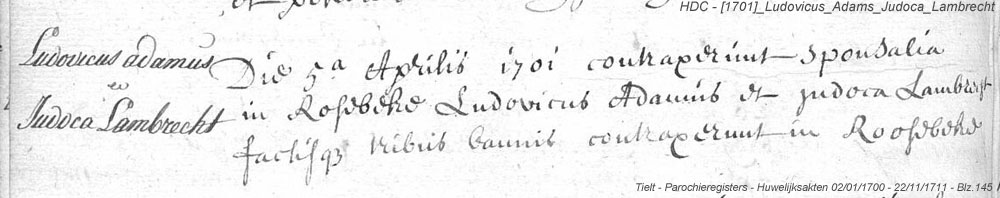 HDC - [1701]_Ludovicus_Adams_Judoca_Lambrecht
Ludovicus adamus
et
Judoca Lambrecht
Die 5a Aprilis 1701 contraxerunt sponsalia
in Rosebeke Ludovicus Adamus et judoca Lambrecht
factisq3 tribus bannis contraxerunt in Roosebeke
Tielt - Parochieregisters - Huwelijksakten 02/01/1700 - 22/11/1711 - Blz.145